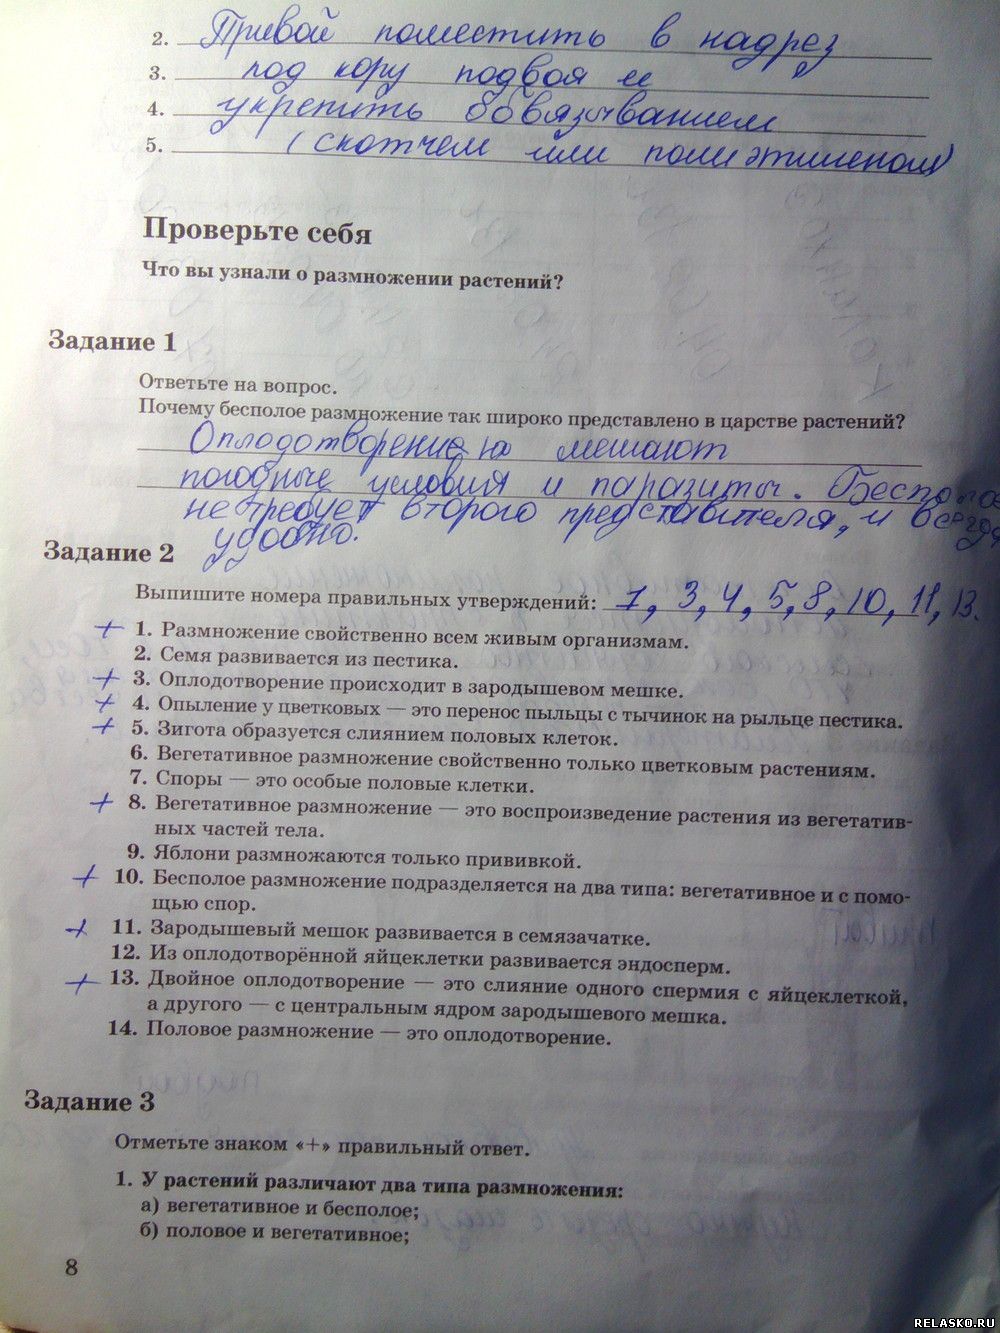 2. Привой поместить в надрез
3. под кору подвоя и
4. укрепить обвязыванием
5. (скотчем или полиэтиленом)
Проверьте себя
Что вы узнали о размножении растений?
Задание 1
Ответьте на вопрос.
Почему бесполое размножение так широко представлено в царстве растений?
Оплодотворению мешают
погодные условия и паразиты. Бесполое
не требует второго представителя, и всегда
удобно.
Задание 2
Выпишите номера правильных утверждений: 1, 3, 4, 5, 8, 10, 11, 13.
+ 1. Размножение свойственно всем живым организмам.
2. Семя развивается из пестика.
+ 3. Оплодотворение происходит в зародышевом мешке.
+ 4. Опыление у цветковых — это перенос пыльцы с тычинок на рыльце пестика.
+ 5. Зигота образуется слиянием половых клеток.
6. Вегетативное размножение свойственно только цветковым растениям.
7. Споры — это особые половые клетки.
+ 8. Вегетативное размножение — это воспроизведение растения из вегетатив-
ных частей тела.
9. Яблони размножаются только прививкой.
+ 10. Бесполое размножение подразделяется на два типа: вегетативное и с помо-
щью спор.
+ 11. Зародышевый мешок развивается в семязачатке.
12. Из оплодотворённой яйцеклетки развивается эндосперм.
+ 13. Двойное оплодотворение — это слияние одного спермия с яйцеклеткой,
а другого — с центральным ядром зародышевого мешка.
14. Половое размножение — это оплодотворение.
Задание 3
Отметьте знаком «+» правильный ответ.
1. У растений различают два типа размножения:
а) вегетативное и бесполое;
б) половое и вегетативное;
8
RELASKO.RU